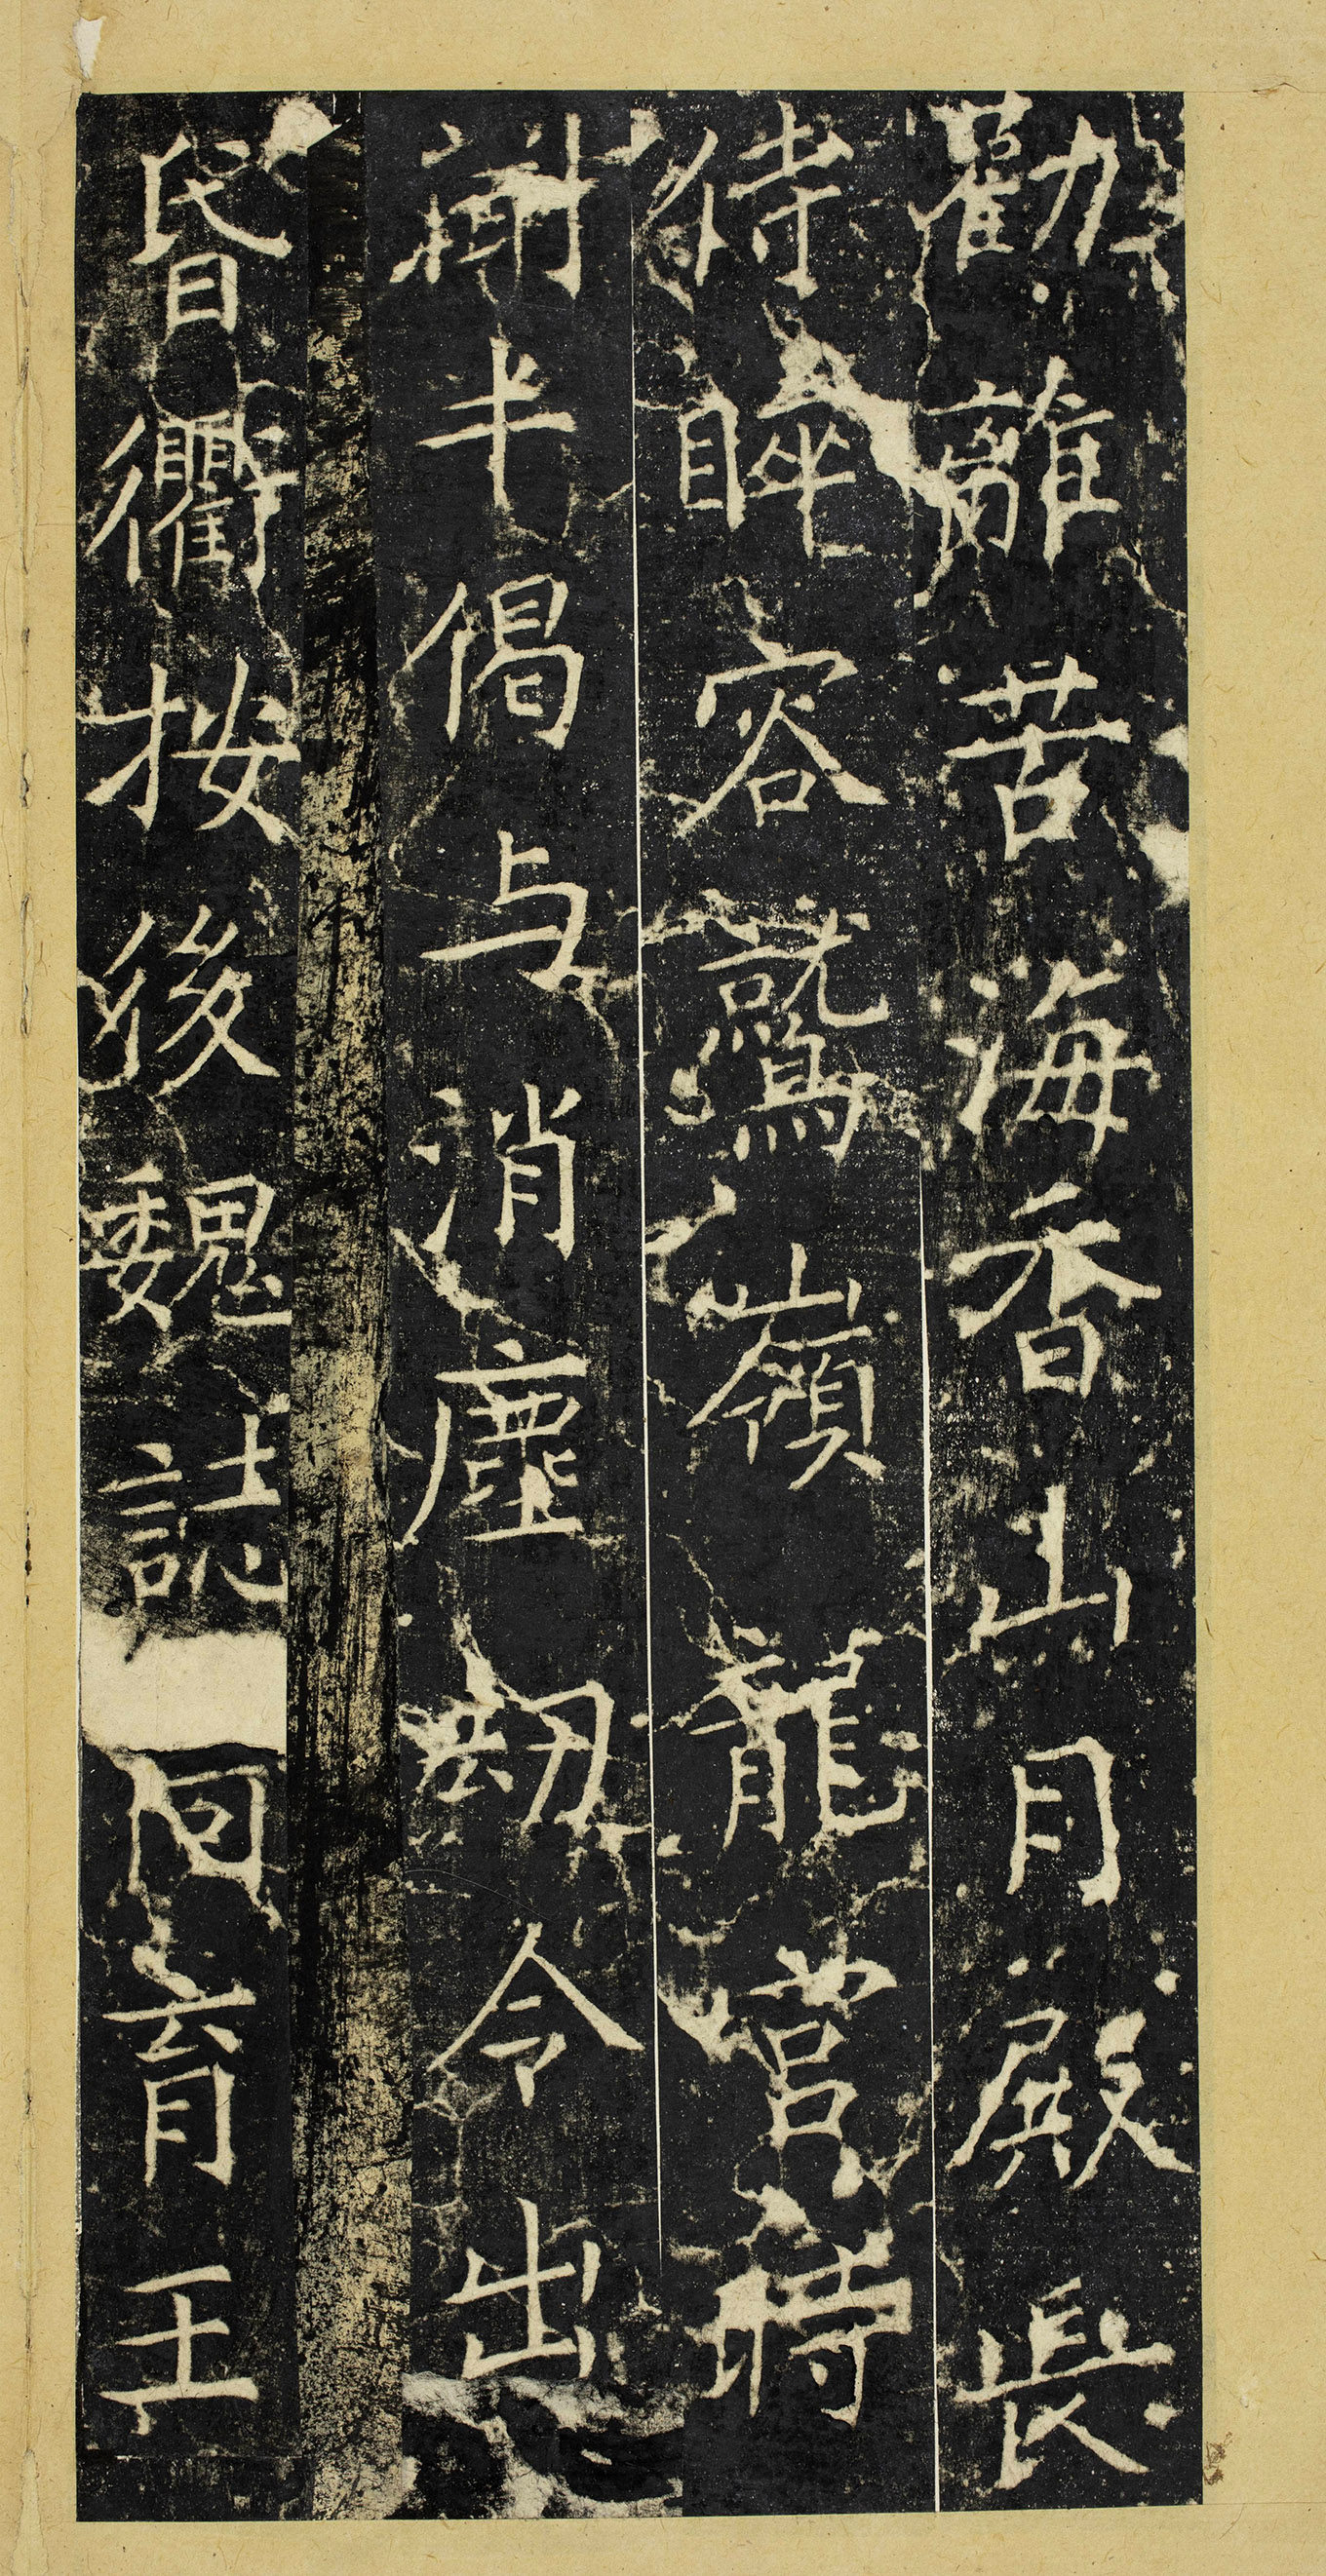 勸離苦海香山月殿長
侍睟容鷲嶺龍宮時
聞半偈与消塵刼令出
昏衢按後魏誌同育王